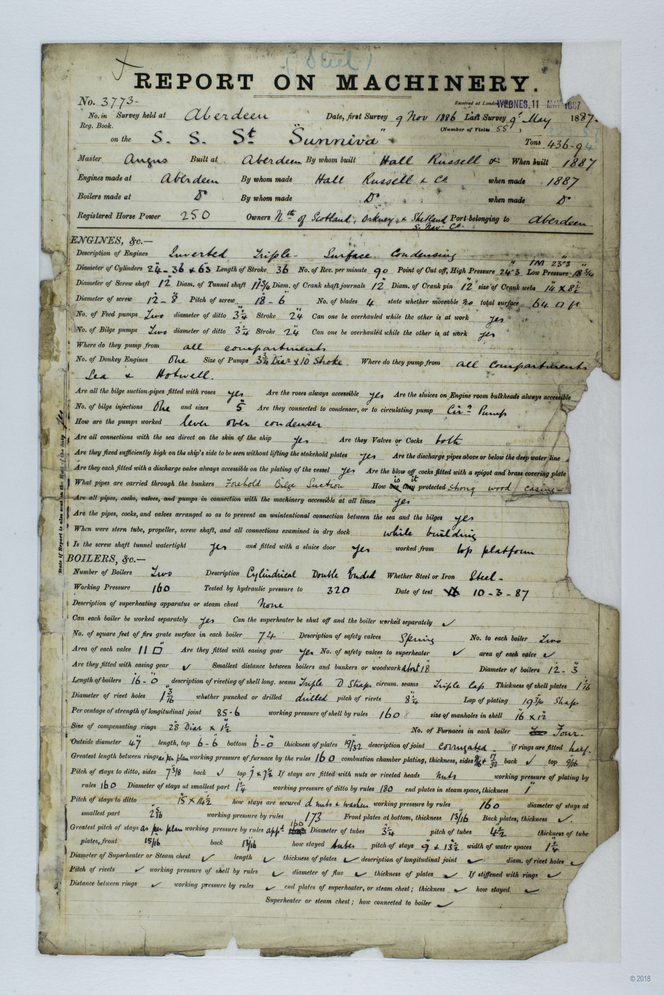 (Steel)
REPORT ON MACHINERY.
No. 3773- Received at London WEDNES. 11 MAY 1887
No. in Survey held at Aberdeen Date, first Survey 9 Nov 1886 Last Survey 9th May 1887.
Reg. Book. (Number of Visits 55)
on the S. S. St "Sunniva" Tons 436.94
Master Angus Built at Aberdeen By whom built Hall Russell & When built 1887
Engines made at Aberdeen By whom made Hall Russell & Co when made 1887
Boilers made at Do By whom made Do when made Do
Registered Horse Power 250 Owners Nth of Scotland, Orkney & Shetland S. Nav Co Port belonging to Aberdeen
ENGINES, &c.—
Description of Engines Inverted Triple - Surface Condensing
Diameter of Cylinders 24-36 & 63 Length of Stroke 36 No. of Rev. per minute 90 Point of Cut off, High Pressure Low Pressure
Diameter of Screw shaft 12 Diam. of Tunnel shaft 11 3/4 Diam. of Crank shaft journals 12 Diam. of Crank pin 12 size of Crank webs 14 x 8 1/2
Diameter of screw 12-8 Pitch of screw 18-6 No. of blades 4 state whether moveable no total surface 64 □ ft
No. of Feed pumps Two diameter of ditto 3 1/4 Stroke 24 Can one be overhauled while the other is at work yes
No. of Bilge pumps Two diameter of ditto 3 1/4 Stroke 24 Can one be overhauled while the other is at work yes
Where do they pump from all compartments
No. of Donkey Engines One Size of Pumps Diar x 10 Stroke Where do they pump from all compartments
Sea & Hotwell.
Are all the bilge suction pipes fitted with roses yes Are the roses always accessible yes Are the sluices on Engine room bulkheads always accessible
No. of bilge injections One and sizes 5 Are they connected to condenser, or to circulating pump Circ Pump
How are the pumps worked lever over condenser
Are all connections with the sea direct on the skin of the ship yes Are they Valves or Cocks both
Are they fixed sufficiently high on the ship's side to be seen without lifting the stokehold plates yes Are the discharge pipes above or below the deep water line
Are they each fitted with a discharge valve always accessible on the plating of the vessel yes Are the blow off cocks fitted with a spigot and brass covering plate
What pipes are carried through the bunkers Forehold Bilge Suction How is it protected strong wood casing
Are all pipes, cocks, valves, and pumps in connection with the machinery accessible at all times yes
Are the pipes, cocks, and valves arranged so as to prevent an unintentional connection between the sea and the bilges yes
When were stern tube, propeller, screw shaft, and all connections examined in dry dock while building
Is the screw shaft tunnel watertight yes and fitted with a sluice door yes worked from top platform
BOILERS, &c.—
Number of Boilers Two Description Cylindrical Double Ended Whether Steel or Iron Steel -
Working Pressure 160 Tested by hydraulic pressure to 320 Date of test 10-3-87
Description of superheating apparatus or steam chest None
Can each boiler be worked separately yes Can the superheater be shut off and the boiler worked separately ✓
No. of square feet of fire grate surface in each boiler 74 Description of safety valves Spring No. to each boiler Two
Area of each valve 11 □ Are they fitted with easing gear yes No. of safety valves to superheater ✓ area of each valve ✓
Are they fitted with easing gear ✓ Smallest distance between boilers and bunkers or woodwork about 18 Diameter of boilers 12-3
Length of boilers 16-0 description of riveting of shell long. seams Triple D Straps circum. seams Triple lap Thickness of shell plates
Diameter of rivet holes 1 3/16 whether punched or drilled drilled pitch of rivets 8 1/4 Lap of plating Straps
Per centage of strength of longitudinal joint 85-6 working pressure of shell by rules 160 size of manholes in shell 16 x 12
Size of compensating rings 28 Diar x 1 1/2 No. of Furnaces in each boiler Four
Outside diameter 47 length, top 6-6 bottom 6-0 thickness of plates 19/32 description of joint corrugated if rings are fitted half
Greatest length between rings as per plan working pressure of furnace by the rules 160 combustion chamber plating, thickness, sides back ✓ top 9/16
Pitch of stays to ditto, sides back ✓ top If stays are fitted with nuts or riveted heads nuts working pressure of plating by
rules 160 Diameter of stays at smallest part 1 1/4 working pressure of ditto by rules 180 end plates in steam space, thickness 1
Pitch of stays to ditto 15 x 14 1/2 how stays are secured d nuts & washers working pressure by rules 160 diameter of stays at
smallest part working pressure by rules 173 Front plates at bottom, thickness 13/16 Back plates, thickness ✓
Greatest pitch of stays as per plan working pressure by rules 160 Diameter of tubes 3 1/4 pitch of tubes 4 1/2 thickness of tube
plates, front 15/16 back 13/16 how stayed tubes pitch of stays 9 & 13 1/2 width of water spaces 1 1/4
Diameter of Superheater or Steam chest ✓ length ✓ thickness of plates ✓ description of longitudinal joint ✓ diam. of rivet holes ✓
Pitch of rivets ✓ working pressure of shell by rules ✓ diameter of flue ✓ thickness of plates ✓ If stiffened with rings ✓
Distance between rings ✓ working pressure by rules ✓ end plates of superheater, or steam chest; thickness ✓ how stayed ✓
Superheater or steam chest; how connected to boiler ✓
© 2018